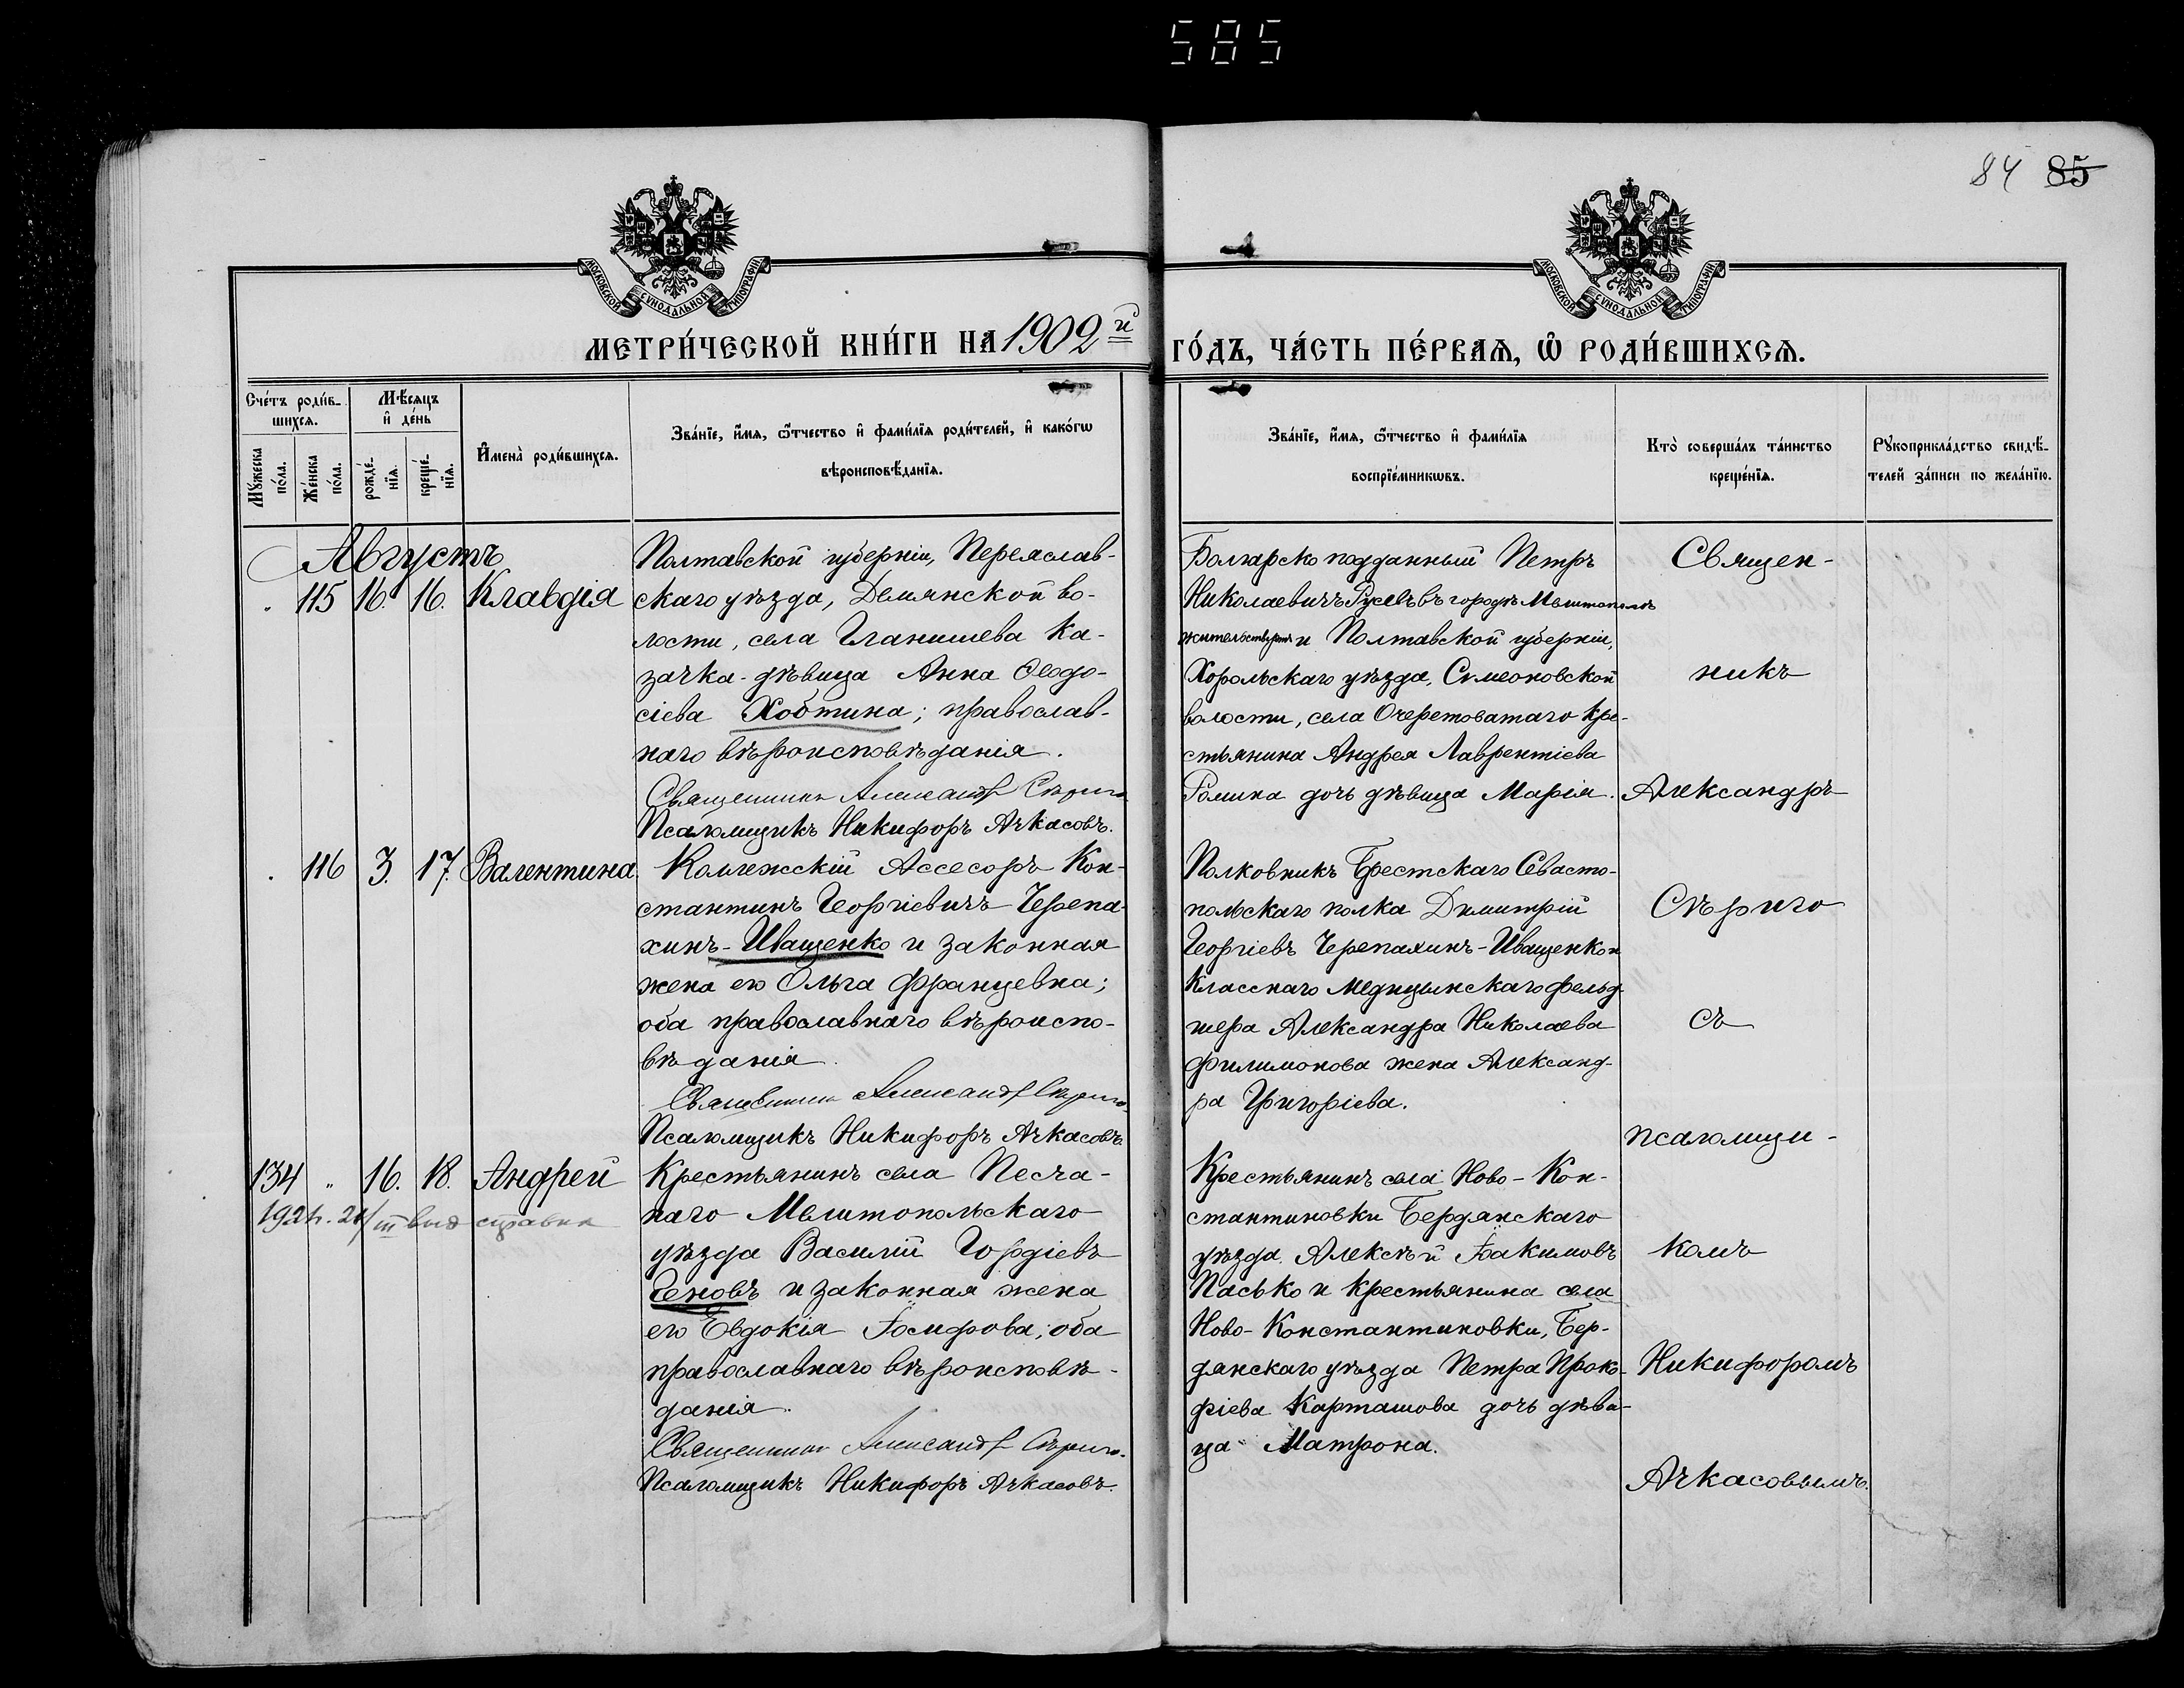 585
84 85
МОСКОВСКОЙ СѴНОДАЛЬНОЙ ТИПОГРАФІИ
МОСКОВСКОЙ СѴНОДАЛЬНОЙ ТИПОГРАФІИ
МЕТРИ́ЧЕСКОЙ КНИ́ГИ НА 1902й
ГО́ДЪ, ЧА́СТЬ ПЕ́РВАѦ, Ѽ РОДИ́ВШИХСѦ.
Сче́тъ роди́в-
шихсѧ.
Мꙋ́жеска по́ла.
Же́нска по́ла.
Мѣ́сѧцъ
и҆ де́нь
рожде́-нїѧ.
креще́-нїѧ.
И҆мена̀ роди́вшихсѧ.
Зва́нїе, и҆́мѧ, ѻ҆́тчество и҆ фами́лїѧ роди́телей, и҆ како́гѡ
вѣроисповѣ́данїѧ.
Зва́нїе, и҆́мѧ, ѻ҆́тчество и҆ фами́лїѧ
воспрїе́мникѡвъ.
Кто̀ соверша́лъ та́инство
креще́нїѧ.
Рꙋкоприкла́дство свидѣ́-
телей за́писи по жела́нїю.
Августъ
115 16. 16. Клавдія
Полтавской губерніи, Переяслав-
скаго уѣзда, Демянской во-
лости, села Гланишева ка-
зачка-дѣвица Анна Ѳеодо-
сіева Хобтина; православ-
наго вѣроисповѣданія.
Священникъ Александръ Сѣриго
Псаломщикъ Никифоръ Ачкасовъ.
Болгарско подданный Петръ
Николаевичъ Русевъ въ городѣ Мелитополѣ
и Полтавской губерніи,
Хорольскаго уѣзда, Семеоновской
волости, села Очеретоватаго кре-
стьянина Андрея Лаврентіева
Ромина дочь дѣвица Марія.
116 3. 17. Валентина
Коллежскій Ассесоръ Кон-
стантинъ Георгіевичъ Черепа-
хинъ-Иващенко и законная
жена его Ольга Францевна;
оба православнаго вѣроиспо-
вѣданія.
Священникъ Александръ Сѣриго
Псаломщикъ Никифоръ Ачкасовъ
Полковникъ Брестскаго Севасто-
польскаго полка Димитрій
Георгіевъ Черепахинъ-Иващенко и
Класснаго медицынскаго фельд-
шера Александра Николаева
Филимонова жена Александ-
ра Григоріева.
134 " 16. 18. Андрей
Крестьянинъ села Песча-
наго Мелитопольскаго
уѣзда Василій Гордіевъ
Геновъ и законная жена
его Евдокія Іосифова; оба
православнаго вѣроисповѣ-
данія.
Священникъ Александръ Сѣриго.
Псаломщикъ Никифоръ Ачкасовъ.
Крестьянинъ села Ново-Кон-
стантиновки Бердянскаго
уѣзда Алексѣй Іоакимовъ
Пасько и крестьянина села
Ново-Константиновки, Бер-
дянскаго уѣзда Петра Проко-
фіева Карташова дочь дѣви-
ца Матрона.
Священ-
никъ
Александръ
Сѣриго
съ
псаломщи-
комъ
Никифоромъ
Ачкасовымъ.